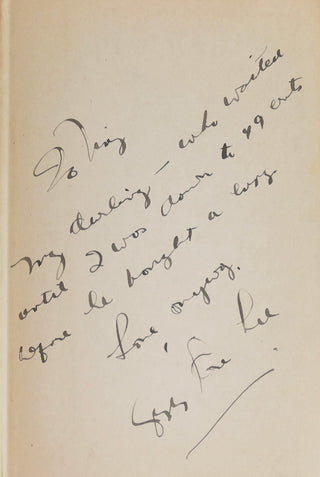 To
my darling – who waited
until I was down to 49 cents
before he bought a copy
Love, anyway,
Gypsy Rose Lee